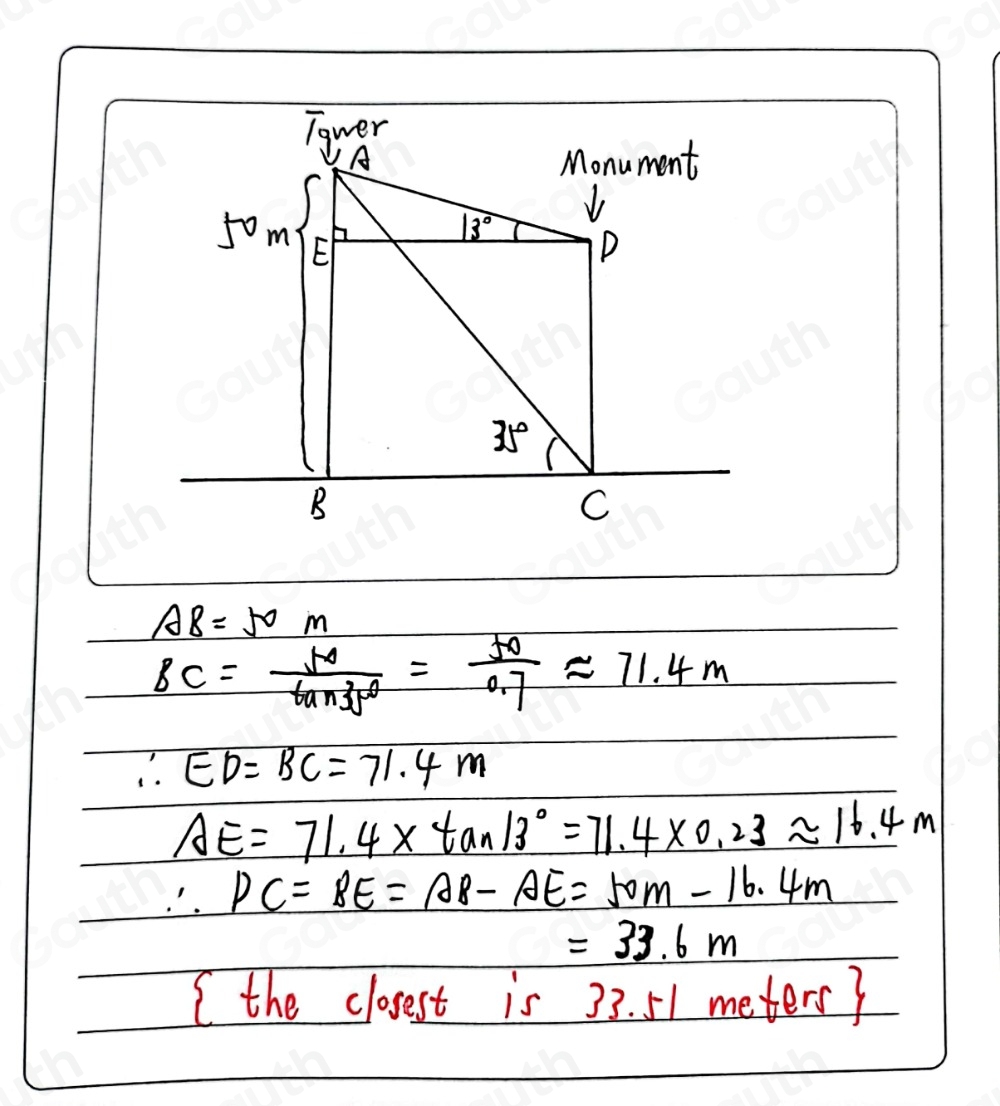 Tower
A
Monument
50 m
13°
E
D
35°
B
C
AB = 50 m
BC = 50/tan35° = 50/0.7 ≈ 71.4 m
∴ ED = BC = 71.4 m
AE = 71.4 × tan13° = 71.4 × 0.23 ≈ 16.4 m
∴ DC = BE = AB - AE = 50m - 16.4m
= 33.6 m
{ the closest is 33.51 meters }
Gauth